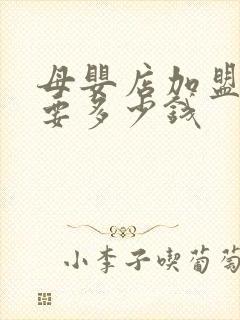 母嬰店加盟
要多少錢
小李子喫葡萄